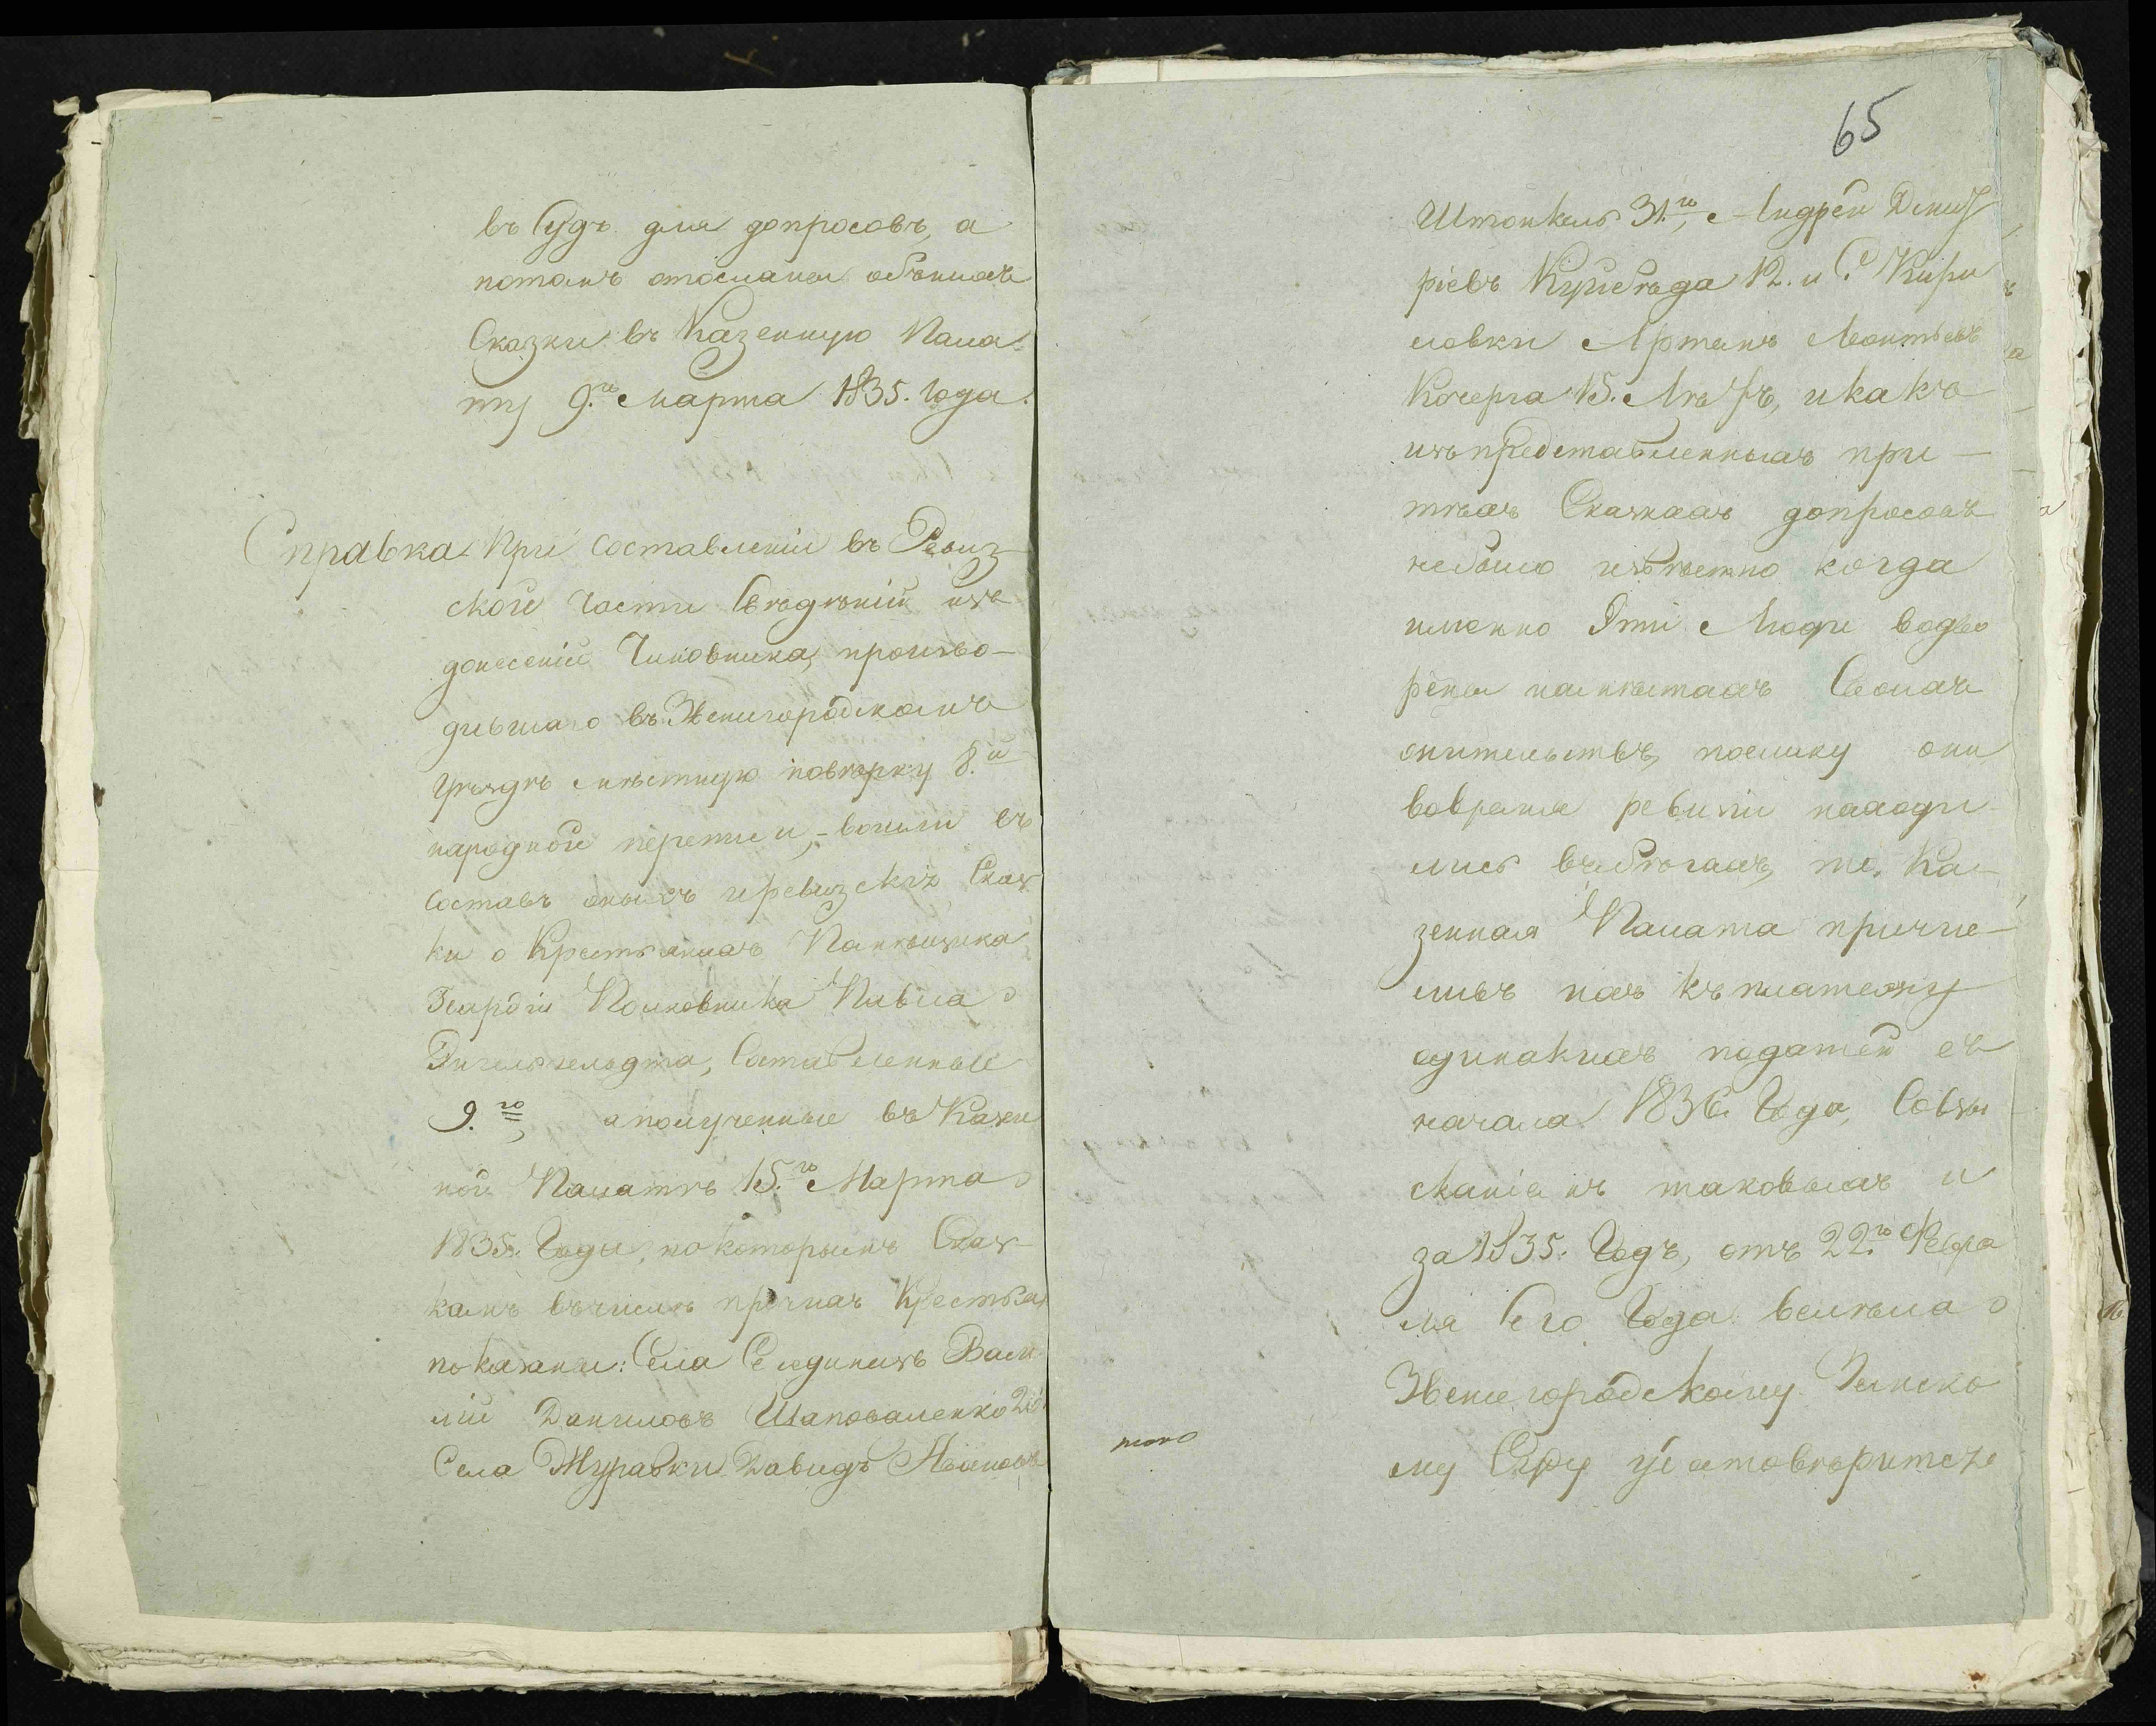 въ Судъ для допросовъ, а
потомъ отосланы объ нихъ
Сказки въ Казенную Пала
ту 9го Марта 1835. года.
Справка. При составленіи въ Ревиз
ской Части Свѣдѣній изъ
донесеній Чиновника, произво-
дившаго въ Звенигородскомъ
Уѣздѣ мѣстную повѣрку 8.й
народной переписи, - вошли въ
составъ оныхъ и ревизскія Сказ
ки о Крестьянахъ Помѣщика
Гвардіи Полковника Павла
Энгельгельдта, Составленные
9.го, а полученные въ Казен
ной Палатѣ 15.го Марта
1835. Года, по которымъ Сказ-
камъ въ числѣ прочихъ Крестьян
показаны: Села Васи
лій Даниловъ Шаповаленко
Села Журавки Давидъ Ивановъ
65
31.го, Андрей
ріевъ 12. и С. Кири
ловки Артемъ Леонтьевъ
Кочерга 15. Лѣтъ, и какъ
изъ представленныхъ при
тѣхъ Сказкахъ допросовъ
небыло извѣстно когда
именно Эти Люди водво
рены на мѣстахъ Своихъ
жительствъ, поелику они
вовремя ревизіи находи
лись въ бѣгахъ, то Ка-
зенная Палата причис-
ливъ ихъ къ платежу
одинакихъ податей съ
начала 1836. Года, Совзы
сканіемъ таковыхъ и
за 1835. Годъ, отъ 22.го Февра
ля Сего Года велѣла
Звенигородскому Земско
му Суду удостовѣриться